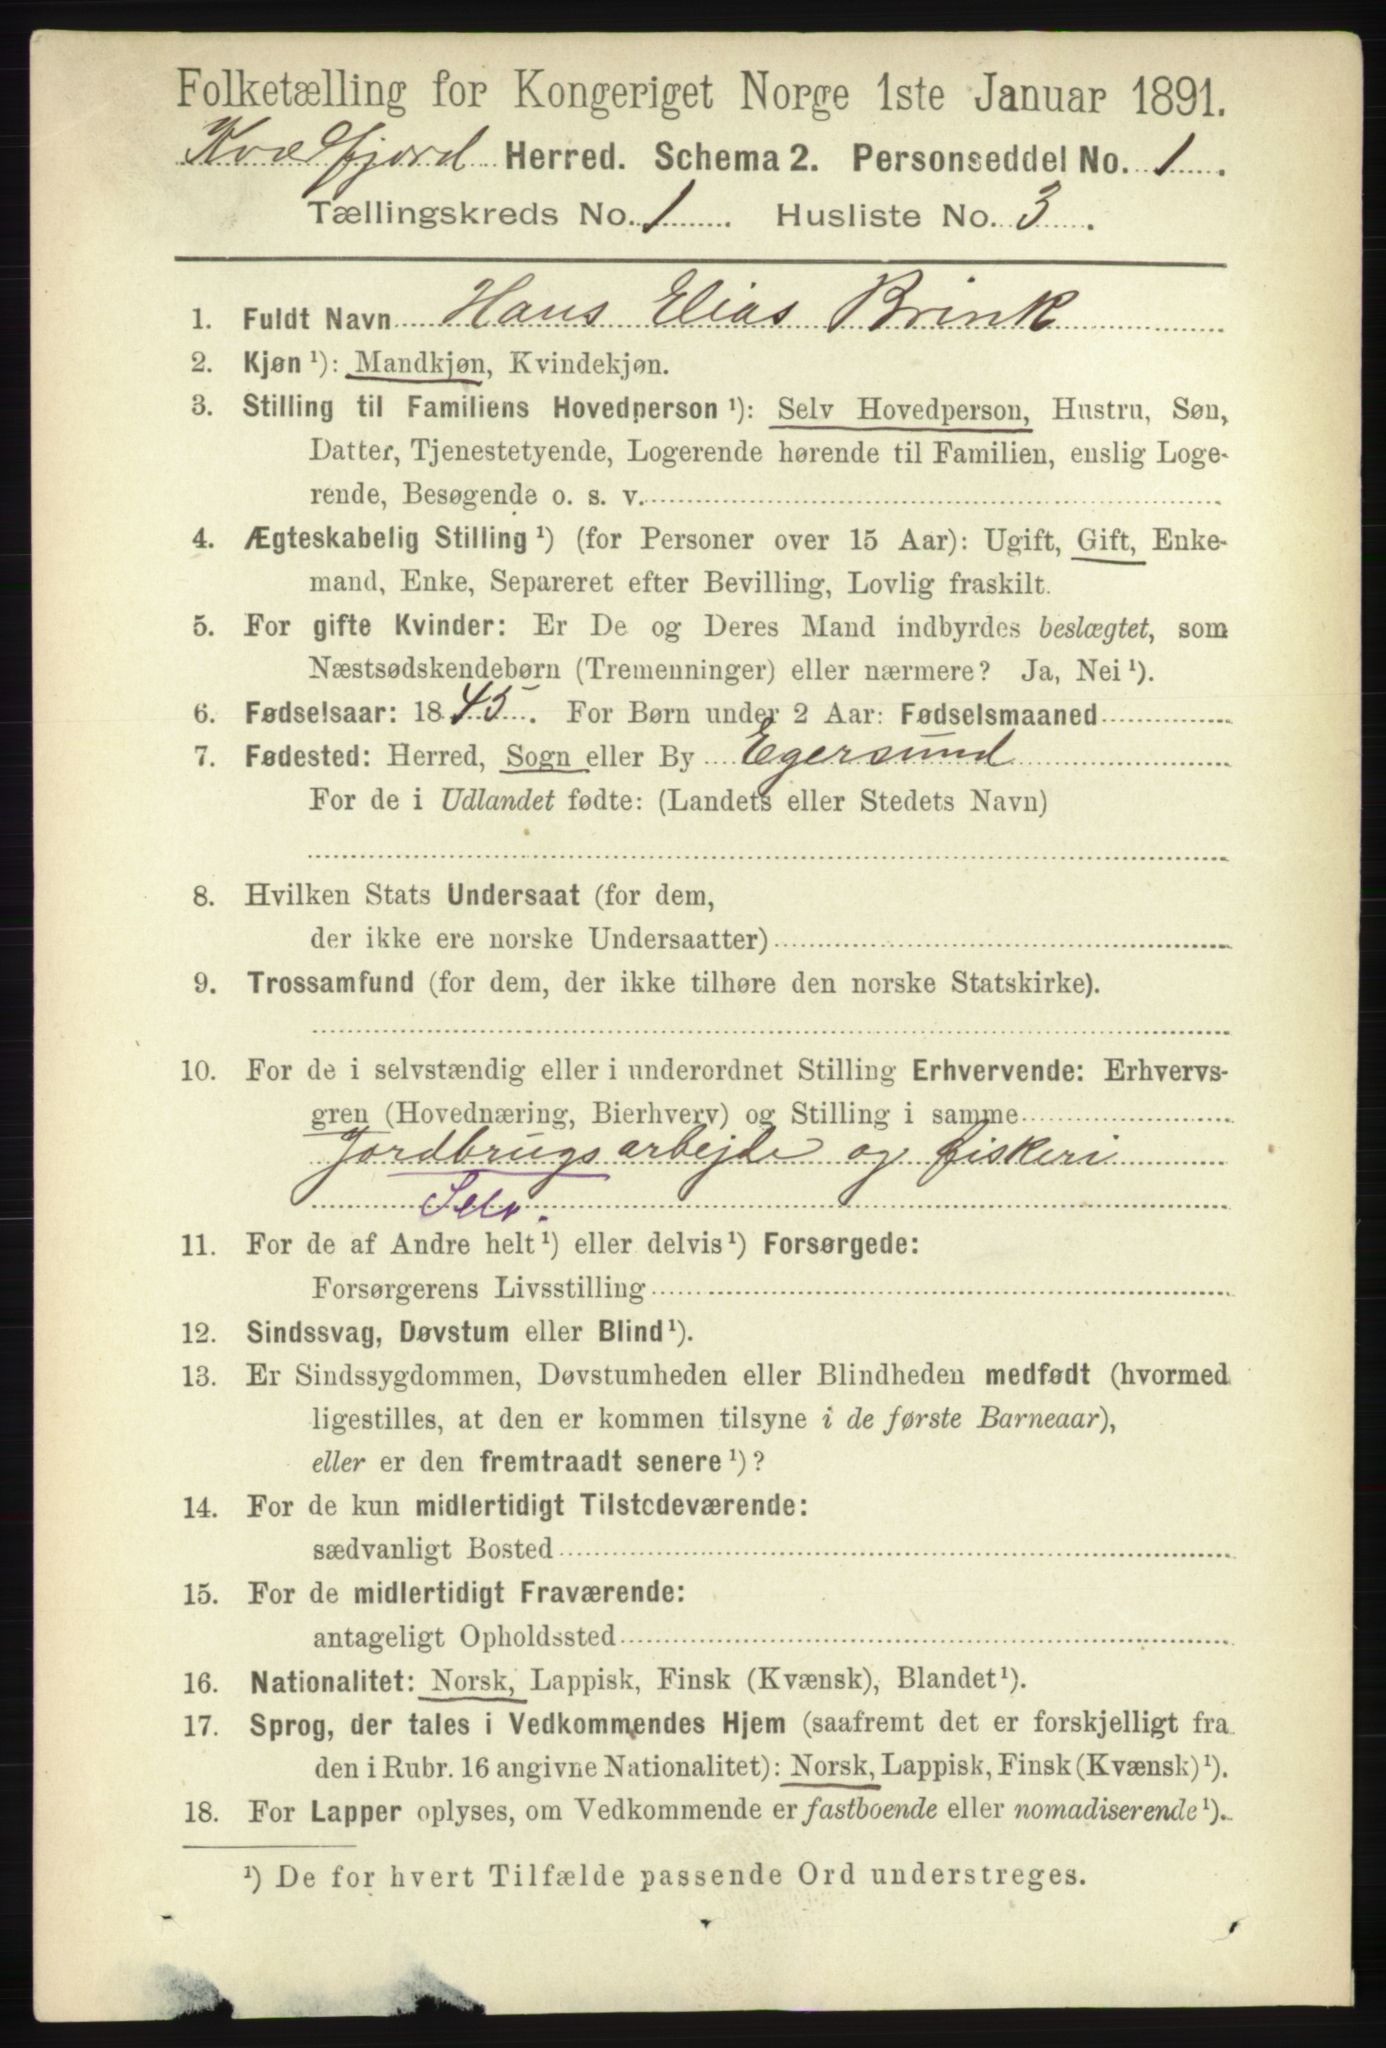 Folketælling for Kongeriget Norge 1ste Januar 1891.
Kvedfjord Herred. Schema 2. Personseddel No. 1.
Tællingskreds No. 1. Husliste No. 3.
1. Fuldt Navn Hans Elias Brink
2. Kjøn ¹): Mandkjøn, Kvindekjøn.
3. Stilling til Familiens Hovedperson ¹): Selv Hovedperson, Hustru, Søn,
Datter, Tjenestetyende, Logerende hørende til Familien, enslig Loge-
rende, Besøgende o. s. v.
4. Ægteskabelig Stilling ¹) (for Personer over 15 Aar): Ugift, Gift, Enke-
mand, Enke, Separeret efter Bevilling, Lovlig fraskilt.
5. For gifte Kvinder: Er De og Deres Mand indbyrdes beslægtet, som
Næstsødskendebørn (Tremenninger) eller nærmere? Ja, Nei ¹).
6. Fødselsaar: 1845. For Børn under 2 Aar: Fødselsmaaned
7. Fødested: Herred, Sogn eller By Egersund
For de i Udlandet fødte: (Landets eller Stedets Navn)
8. Hvilken Stats Undersaat (for dem,
der ikke ere norske Undersaatter)
9. Trossamfund (for dem, der ikke tilhøre den norske Statskirke).
10. For de i selvstændig eller i underordnet Stilling Erhvervende: Erhvervs-
gren (Hovednæring, Bierhverv) og Stilling i samme
Jordbrugsarbejde og fiskeri
Selv.
11. For de af Andre helt ¹) eller delvis ¹) Forsørgede:
Forsørgerens Livsstilling
12. Sindssvag, Døvstum eller Blind ¹).
13. Er Sindssygdommen, Døvstumheden eller Blindheden medfødt (hvormed
ligestilles, at den er kommen tilsyne i de første Barneaar),
eller er den fremtraadt senere ¹)?
14. For de kun midlertidigt Tilstedeværende:
sædvanligt Bosted
15. For de midlertidigt Fraværende:
antageligt Opholdssted
16. Nationalitet: Norsk, Lappisk, Finsk (Kvænsk), Blandet ¹).
17. Sprog, der tales i Vedkommendes Hjem (saafremt det er forskjelligt fra
den i Rubr. 16 angivne Nationalitet): Norsk, Lappisk, Finsk (Kvænsk) ¹).
18. For Lapper oplyses, om Vedkommende er fastboende eller nomadiserende ¹).
¹) De for hvert Tilfælde passende Ord understreges.